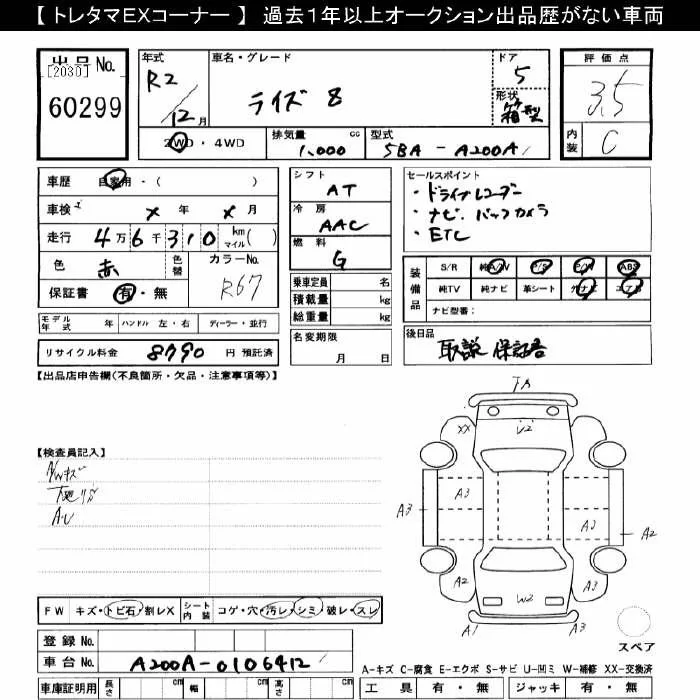 【 トレタマEXコーナー 】 過去１年以上オークション出品歴がない車両
出品 No.
[2030]
60299
年式
R2/12月
車名・グレード
ライズ
ドア
5
形状
箱型
2WD・4WD
排気量 cc
1,000
型式
5BA-A200A
評価点
3.5
内装
C
車歴 自家用・( )
車検 × 年 × 月
走行 4万6千310 km マイル( )
色 赤
色替
カラーNo.
R67
保証書 有・無
モデル年式 年 ハンドル 左・右 ディーラー・並行
リサイクル料金 8790 円 預託済
シフト
AT
冷房
AAC
燃料
G
乗車定員 名
積載量 kg
総重量 kg
名変期限
月 日
セールスポイント
・ドライブレコーダー
・ナビ. バックカメラ
・ETC
装備品
S/R 純A/W P/S P/W ABS
純TV 純ナビ 革シート 外ナビ エアB
ナビ型番：
後日品
取説 保証書
【出品店申告欄(不良箇所・欠品・注意事項等)】
【検査員記入】
A/Wキズ
FA
XX
U2
A3
A3
A3
A2
A2
W2
A1
A3
スペア
FW キズ・トビ石・割レX
シート内装 コゲ・穴・汚レ・シミ・破レ・スレ
登録 No.
車台 No. A200A-0106412
車庫証明用 長さ cm 幅 cm 高さ cm
A-キズ C-腐食 E-エクボ S-サビ U-凹ミ W-補修 XX-交換済
工具 有・無 ジャッキ 有・無